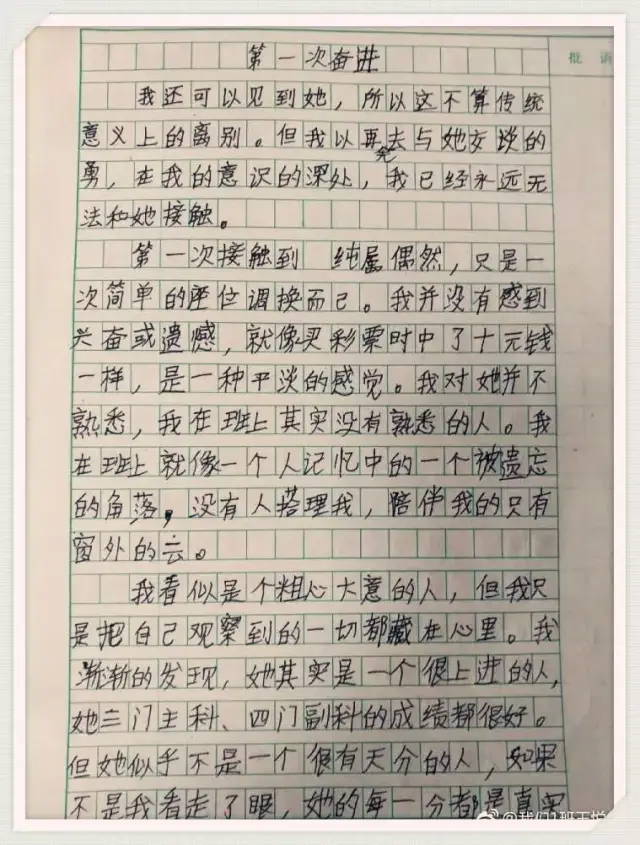 第一次奋进
批语
我还可以见到她，所以这不算传统
意义上的离别。但我以再充去与她交谈的
勇，在我的意识的深处，我已经永远无
法和她接触。
第一次接触到 纯属偶然，只是一
次简单的座位调换而己。我并没有感到
兴奋或遗憾，就像买彩票时中了十元钱
一样，是一种平淡的感觉。我对她并不
熟悉，我在班上其实没有熟悉的人。我
在班上就像一个人记忆中的一个被遗忘
的角落，没有人搭理我，陪伴我的只有
窗外的云。
我看似是个粗心大意的人，但我只
是把自己观察到的一切都藏在心里。我
渐渐的发现，她其实是一个很上进的人，
她三门主科、四门副科的成绩都很好。
但她似乎不是一个很有天分的人，如果
不是我看走了眼，她的每一分都是真实
@我们1班王悦